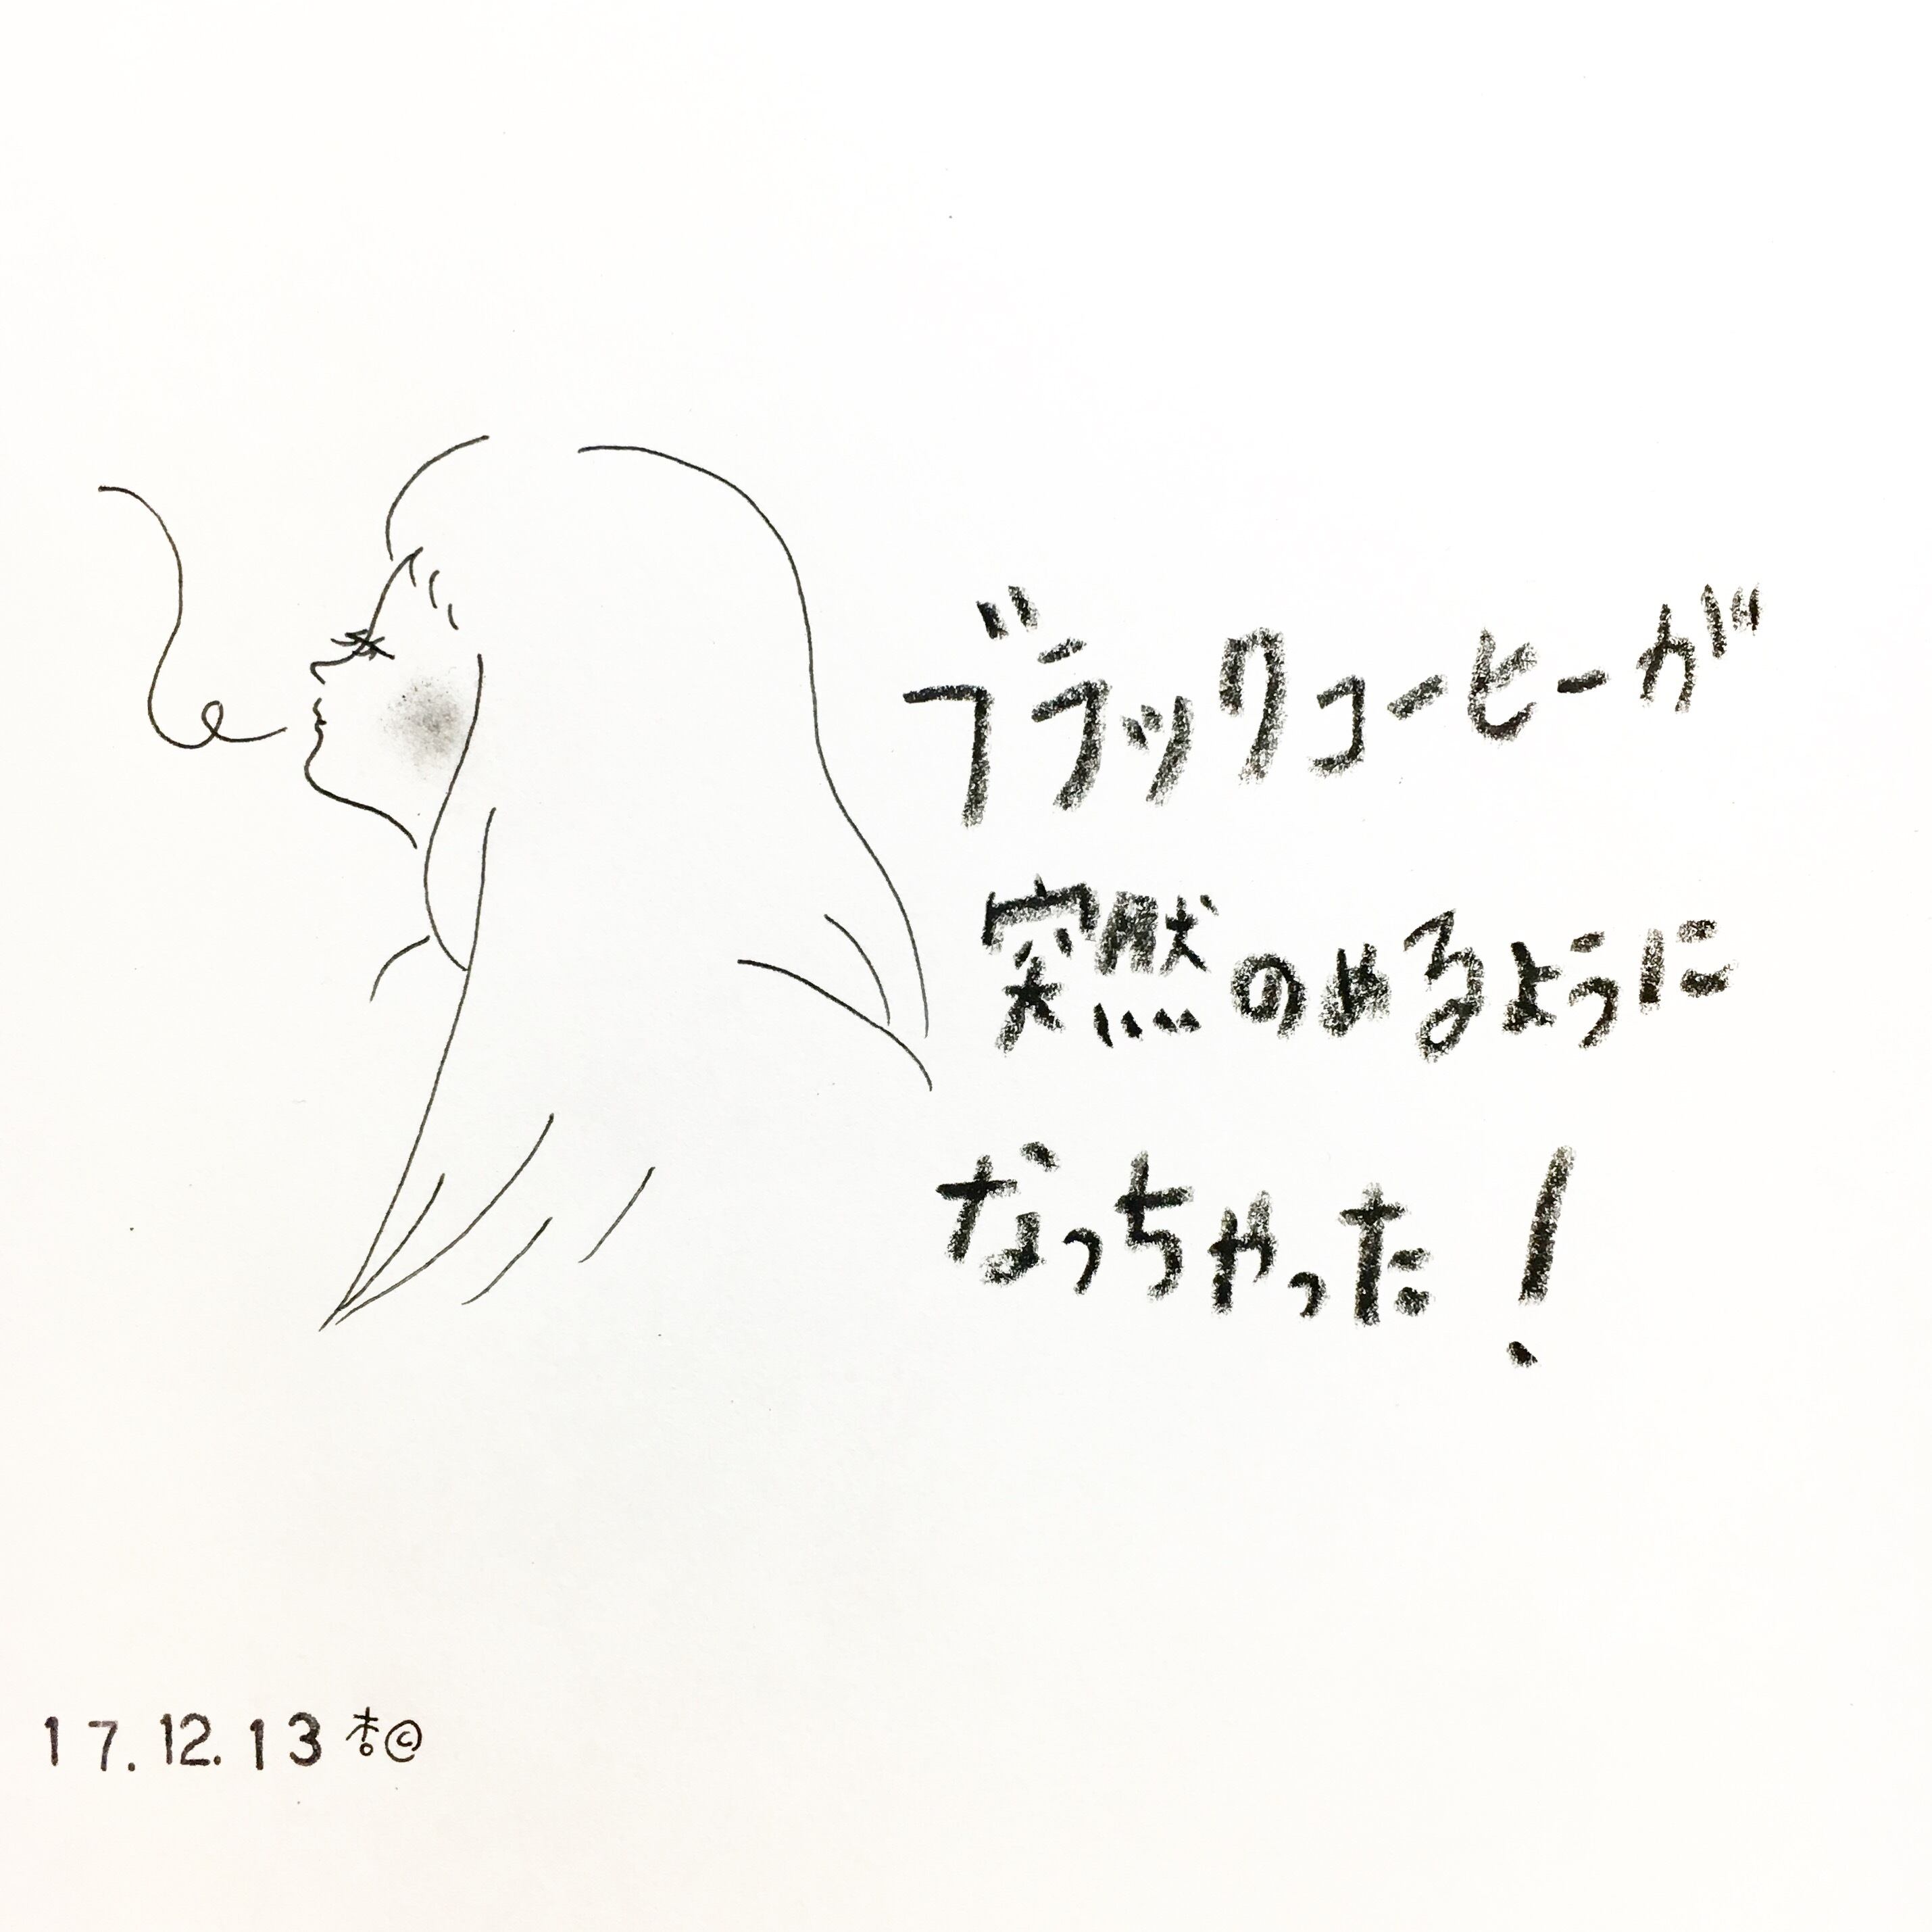 ブラックコーヒーが
突然のめるように
なっちゃった!
17.12.13 杏©